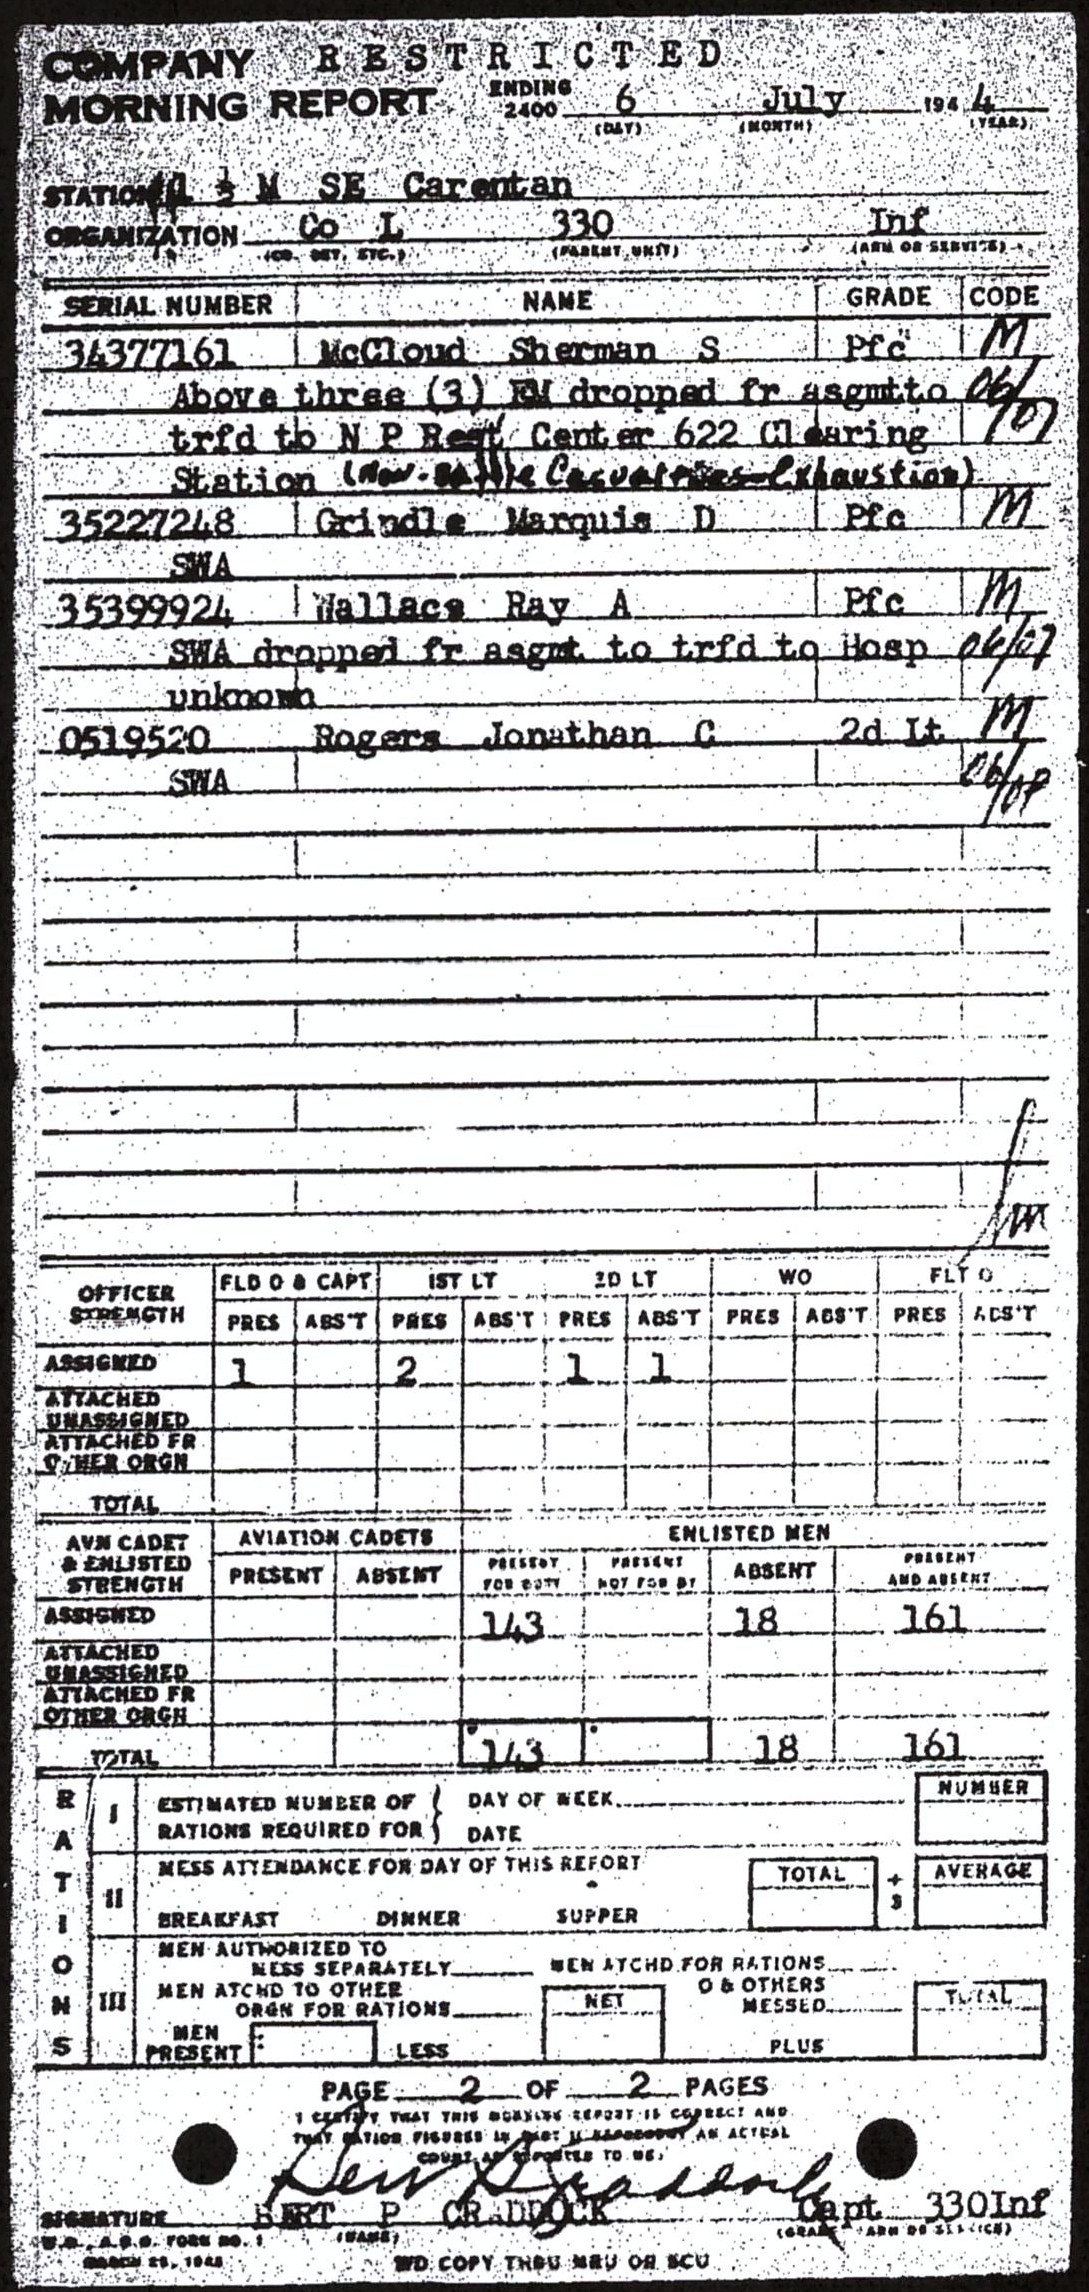 RESTRICTED
COMPANY
MORNING REPORT ENDING 2400 6 July 1944
(DAY) (MONTH) (YEAR)
STATION 1 ½ M SE Carentan
ORGANIZATION Co L 330 Inf
(CO. DET. ETC.) (PARENT UNIT) (ARM OR SERVICE)
SERIAL NUMBER NAME GRADE CODE
34377161 McCloud Sherman S Pfc M
Above three (3) EM dropped fr asgmtto 06/07
trfd to N P Rest Center 622 Clearing
Station (Non-Battle Casualties-Exhaustion)
35227248 Grindle Marquis D Pfc M
SWA
35399924 Wallace Ray A Pfc M
SWA dropped fr asgmt to trfd to Hosp 06/07
unknown
0519520 Rogers Jonathan C 2d Lt M
SWA 06/
OFFICER STRENGTH FLD O & CAPT 1ST LT 2D LT WO FLT O
PRES ABS'T PRES ABS'T PRES ABS'T PRES ABS'T PRES ABS'T
ASSIGNED 1 2 1 1
ATTACHED
UNASSIGNED
ATTACHED FR
OTHER ORGN
TOTAL
AVN CADET & ENLISTED STRENGTH AVIATION CADETS ENLISTED MEN
PRESENT ABSENT PRESENT FOR DUTY PRESENT NOT FOR DY ABSENT PRESENT AND ABSENT
ASSIGNED 143 18 161
ATTACHED
UNASSIGNED
ATTACHED FR
OTHER ORGN
TOTAL 143 18 161
RATIONS
I ESTIMATED NUMBER OF RATIONS REQUIRED FOR { DAY OF WEEK NUMBER
DATE
II MESS ATTENDANCE FOR DAY OF THIS REPORT TOTAL ÷ 3 AVERAGE
BREAKFAST DINNER SUPPER
III MEN AUTHORIZED TO
MESS SEPARATELY MEN ATCHD FOR RATIONS
MEN ATCHD TO OTHER O & OTHERS
ORGN FOR RATIONS NET MESSED TOTAL
MEN PRESENT LESS PLUS
PAGE 2 OF 2 PAGES
I CERTIFY THAT THIS MORNING REPORT IS CORRECT AND
THAT RATION FIGURES IN PART II REPRESENT AN ACTUAL
COUNT AS REPORTED TO ME.
SIGNATURE BERT P CRADDOCK Capt 330Inf
W.D., A.G.O. FORM NO. 1 (NAME) (GRADE ARM OR SERVICE)
MARCH
WD COPY THRU MRU OR SCU